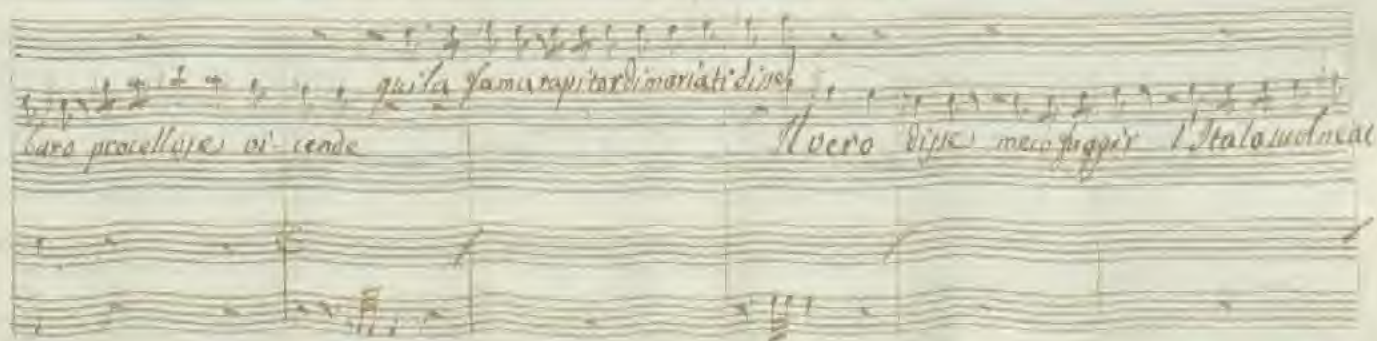 qui la fama rapitor di mariati disse
Caro procellose vi-cende
Il vero disse meco fuggir l'Italo suol